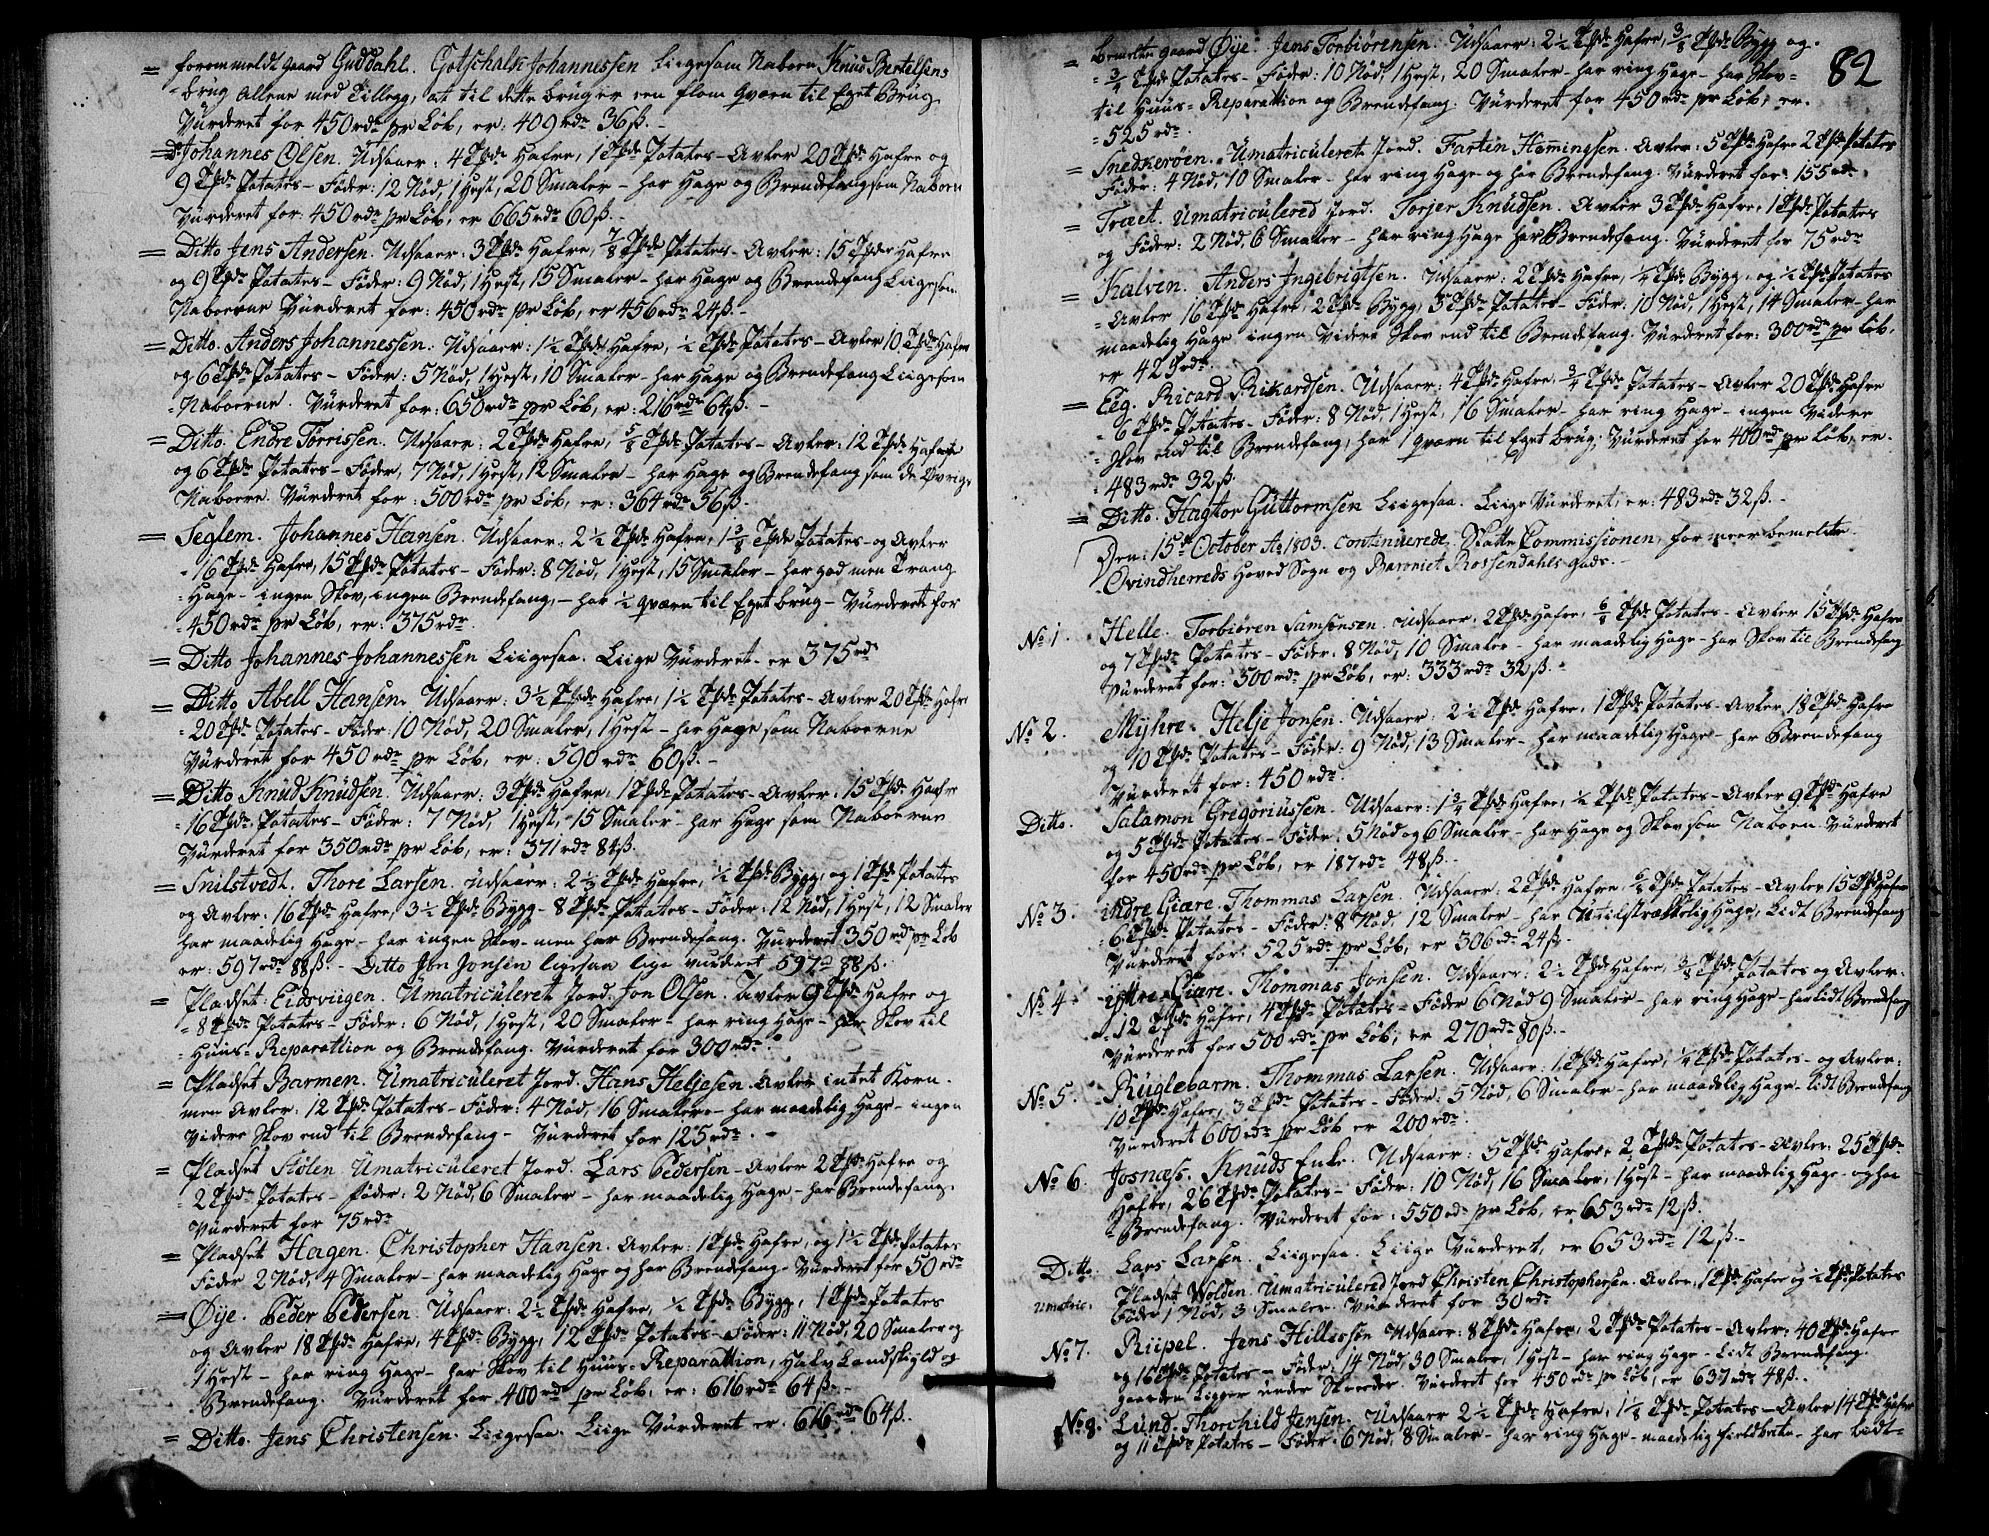 = forommeldt gaard Guddahl. Gotschalk Johannessen Liigesom Naboen Knud Bertelsens
brug allene med Tillegg, at til dette brug er een flom qværn til Eget Brug
Vurderet for 450 rdr pr Løb, er: 409 rdr 36 ß.-
=Do Johannes Olsen. Udsaaer: 4 Tdr Hafre, 1 Tdr Potates - Avler 20 Tdr Hafre og
9 Tdr Potates - Føder: 12 Nød, 1 Hest, 20 Smaler - har Hage og Brendefang som Naboen
Vurderet for: 450 rdr pr Løb, er 665 rdr 60 ß.-
= Ditto Jens Andersen. Udsaaer: 3 Tdr Hafre, 7/8 Tdr Potates - Avler: 15 Tdr Hafre
og 9 Tdr Potates - Føder: 9 Nød, 1 Hest, 15 Smaler - har Hage og Brendefang Liigesom
Naboerne Vurderet for: 450 rdr pr Løb, er 456 rdr 24 ß.-
= Ditto. Anders Johannessen. Udsaaer: 1½ Tdr Hafre, ½ Tdr Potates - Avler 10 Tdr Hafre
og 6 Tdr Potates - Føder: 5 Nød, 1 Hest, 10 Smaler - har Hage og Brendefang Liigesom
Naboerne. Vurderet for: 650 rdr pr Løb, er: 216 rdr 64 ß.-
= Ditto. Endre Tørrissen. Udsaaer: 2 Tdr Hafre, 5/8 Tdr Potates - Avler: 12 Tdr Hafre
og 6 Tdr Potates - Føder, 7 Nød, 1 Hest, 12 Smaler - har Hage og Brendefang som de Øvrige
Naboerne. Vurderet for: 500 rdr pr Løb, er: 364 rdr 56 ß.
= Seglem. Johannes Hansen. Udsaaer: 2½ Tdr Hafre, 1 3/8 Tdr Potates - og Avler
16 Tdr Hafre, 15 Tdr Potates - Føder: 8 Nød, 1 Hest, 15 Smaler - har god men Trang
Hage - ingen Skov, ingen Brendefang, - har ½ qværn til Eget brug - Vurderet for
450 rdr pr Løb, er: 375 rdr.
= Ditto Johannes Johannessen Liigesaa. Liige Vurderet - er 375 rdr
= Ditto Abell Hansen. Udsaaer: 3½ Tdr Hafre, 1½ Tdr Potates - Avler 20 Tdr Hafre
20 Tdr Potates - Føder: 10 Nød, 20 Smaler, 1 Hest - har Hage som Naboerne
Vurderet for 450 rdr pr Løb, er: 590 rdr 60 ß.-
= Ditto Knud Knudsen. Udsaaer: 3 Tdr Hafre, 1 Tdr Potates - Avler: 15 Tdr Hafre
16 Tdr Potates - Føder: 7 Nød, 1 Hest, 15 Smaler - har Hage som Naboerne
Vurderet for 350 rdr pr Løb, er: 371 rdr 84 ß.
= Snilstvedt. Thore Larsen. Udsaaer: 2½ Tdr Hafre, ½ Tdr Bygg, og 1 Tdr Potates
og Avler: 16 Tdr Hafre, 3½ Tdr Bygg - 8 Tdr Potates - Føder: 12 Nød, 1 Hest, 12 Smaler
har maadelig Hage - har ingen Skov - men har Brendefang. Vurderet 350 rdr pr Løb
er: 597 rdr 88 ß. - Ditto Jon Jonsen ligesaa lige vurderet 597 rd 88 ß.
= Pladset Eidsviigen. Umatriculeret Jord. Jon Olsen. Avler 9 Tdr Hafre og
8 Tdr Potates - Føder: 6 Nød, 1 Hest, 20 Smaler - har ring Hage - har Skov til
Huus-Reparattion og Brendefang. Vurderet for 300 rdr.
= Pladset Barmen. Umatriculeret Jord. Hans Heljesen Avler intet Korn.
men Avler: 12 Tdr Potates - Føder: 4 Nød, 16 Smaler - har maadelig Hage - ingen
Videre Skov end til Brendefang - Vurderet for 125 rdr. -
= Pladset Stølen Umatriculeret Jord. Lars Pedersen - Avler 2 Tdr Hafre og
2 Tdr Potates - Føder: 2 Nød, 6 Smaler - har maadelig Hage - har Brendefang.
Vurderet for 75 rdr
= Pladset Hagen. Christopher Hansen. Avler: 1 Tdr Hafre, og 1½ Tdr Potates
Føder 2 Nød, 4 Smaler - har maadelig Hage og har Brendefang - Vurderet for 50 rdr
= Øye. Peder Pedersen. Udsaaer: 2½ Tdr Hafre, ½ Tdr Bygg, 1 Tdr Potates
og Avler 18 Tdr Hafre, 4 Tdr Bygg, 12 Tdr Potates - Føder: 11 Nød, 20 Smaler og
1 Hest - har ring Hage - har Skov til Huus-Reparattion, Halv Landskyld og
Brendefang. Vurderet for 400 rdr pr Løb, er: 616 rdr 64 ß.
= Ditto. Jens Christensen. Liigesaa. Liige Vurderet er: 616 rdr 64 ß.
82
= bemelte gaard Øye. Jens Torbiørensen. Udsaaer: 2½ Tdr Hafre, 3/8 Tdr Bygg og.
3/4 Tdr Potates - Føder: 10 Nød, 1 Hest, 20 Smaler - har ring Hage - har Skov
til Huus-Reparattion og Brendefang. Vurderet for 450 rdr pr Løb, er.
525 rdr.
= Snedkerøen. Umatriculeret Jord. Fartin Hemingsen. Avler: 5 Tdr Hafre 2 Tdr Potates
Føder: 4 Nød, 10 Smaler - har ring Hage og har Brendefang. Vurderet for 155 rdr.
= Træet. Umatriculered Jord. Torjer Knudsen. Avler 3 Tdr Hafre, 1 Tdr Potates
og Føder: 2 Nød, 6 Smaler - har ring Hage har Brendefang. Vurderet for 75 rdr
= Kalven. Anders Ingebrigtsen. Udsaaer: 2 Tdr Hafre, ¼ Tdr Bygg, og ½ Tdr Potates
Avler 16 Tdr Hafre, 2 Tdr Bygg, 5 Tdr Potates - Føder: 10 Nød, 1 Hest, 14 Smaler - har
maadelig Hage ingen Videre Skov end til Brendefang. Vurderet for: 300 rdr pr Løb,
er 425 rdr.
= Eeg. Ricard Rikardsen. Udsaaer: 4 Tdr Hafre, 3/4 Tdr Potates - Avler 20 Tdr Hafre
6 Tdr Potates - Føder: 8 Nød, 1 Hest, 16 Smaler - har ring Hage - ingen Videre
Skov end til Brendefang, har 1 qværn til Eget brug. Vurderet for 400 rdr pr Løb, er.
483 rdr 32 ß.
= Ditto. Hagtor Guttormsen Liigesaa. Liige Vurderet, er: 483 rdr 32 ß.-
Den: 15de October Ao 1803. continuerede Skatte Commissionen, for meerbemelte
Qvindherreds Hoved Sogn og Baroniet Rossendahls gods.-
No 1. Helle. Torbiøren Samsonsen. Udsaaer: 2 Tdr Hafre, 6/8 Tdr Potates - Avler 15 Tdr Hafre
og 7 Tdr Potates - Føder: 8 Nød, 10 Smaler - har maadelig Hage - har Skov til Brendefang
Vurderet for: 500 rdr pr Løb, er: 333 rdr 32 ß.-
No 2. Myhre. Helje Jonsen. Udsaaer: 2½ Tdr Hafre, 1 Tdr Potates - Avler 18 Tdr Hafre
og 10 Tdr Potates - Føder: 9 Nød, 13 Smaler - har maadelig Hage - har Brendefang
Vurderet for: 450 rdr.
Ditto. Salamon Gregoriussen. Udsaaer: 1 3/4 Tdr Hafre, ½ Tdr Potates - Avler 9 Tdr Hafre
og 5 Tdr Potates - Føder: 5 Nød og 6 Smaler - har Hage og Skov som Naboen. Vurderet
for 450 rdr pr Løb, er 187 rdr 48 ß.-
No 3. indre Giære. Thommas Larsen. Udsaaer: 2 Tdr Hafre, 6/8 Tdr Potates - Avler 15 Tdr Hafre
6 Tdr Potates - Føder: 8 Nød, 12 Smaler - har Utilstrækkelig Hage, Lidt Brendefang
Vurderet for: 525 rdr pr Løb, er 306 rdr 24 ß.-
No 4. Yttre Giære. Thommas Jonsen. Udsaaer: 2½ Tdr Hafre, 3/8 Tdr Potates og Avler.
12 Tdr Hafre, 4 Tdr Potates - Føder 6 Nød 9 Smaler - har ring Hage - har Lidt Brendefang
Vurderet for 500 rdr pr Løb, er 270 rdr 80 ß.-
No 5. Ruglebarm. Thommas Larsen. Udsaaer: 1 Tdr Hafre, ¼ Tdr Potates - og Avler:
10 Tdr Hafre, 3 Tdr Potates - Føder: 5 Nød, 6 Smaler - har maadelig Hage - Lidt Brendefang
Vurderet 600 rdr pr Løb er 200 rdr.
No 6. Josnæs. Knuds Enke. Udsaaer: 5 Tdr Hafre, 2 Tdr Potates - Avler: 25 Tdr
Hafre, 26 Tdr Potates - Føder: 10 Nød, 16 Smaler, 1 Hest - har maadelig Hage - og har
Brendefang. Vurderet for: 550 rdr pr Løb, er 653 rdr 12 ß.
Ditto. Lars Larsen. Liigesaa. Liige Vurderet, er 653 rdr 12 ß.-
Umatric. Pladset Wolden. Umatriculered Jord Christen Christophersen. Avler, 1 Tdr Hafre og ½ Tdr Potates
Føder 1 Nød, 3 Smaler. Vurderet for 30 rdr
No 7. Riipel. Jens Hillessøn Udsaaer: 8 Tdr Hafre, 2 Tdr Potates - Avler: 40 Tdr Hafre
og 16 Tdr Potates - Føder: 14 Nød 30 Smaler, 1 Hest - har ring Hage - Lidt Brendefang.
Gaarden Ligger under Skreeder. Vurderet for 450 rdr pr Løb, er 637 rdr 48 ß.
No 8. Lund. Thorchild Jensen. Udsaaer 2½ Tdr Hafre, 1 1/8 Tdr Potates - Avler 14 Tdr Hafre
og 11 Tdr Potates - Føder: 6 Nød, 8 Smaler - har ring Hage - maadelig fieldbeite - har Lidt-